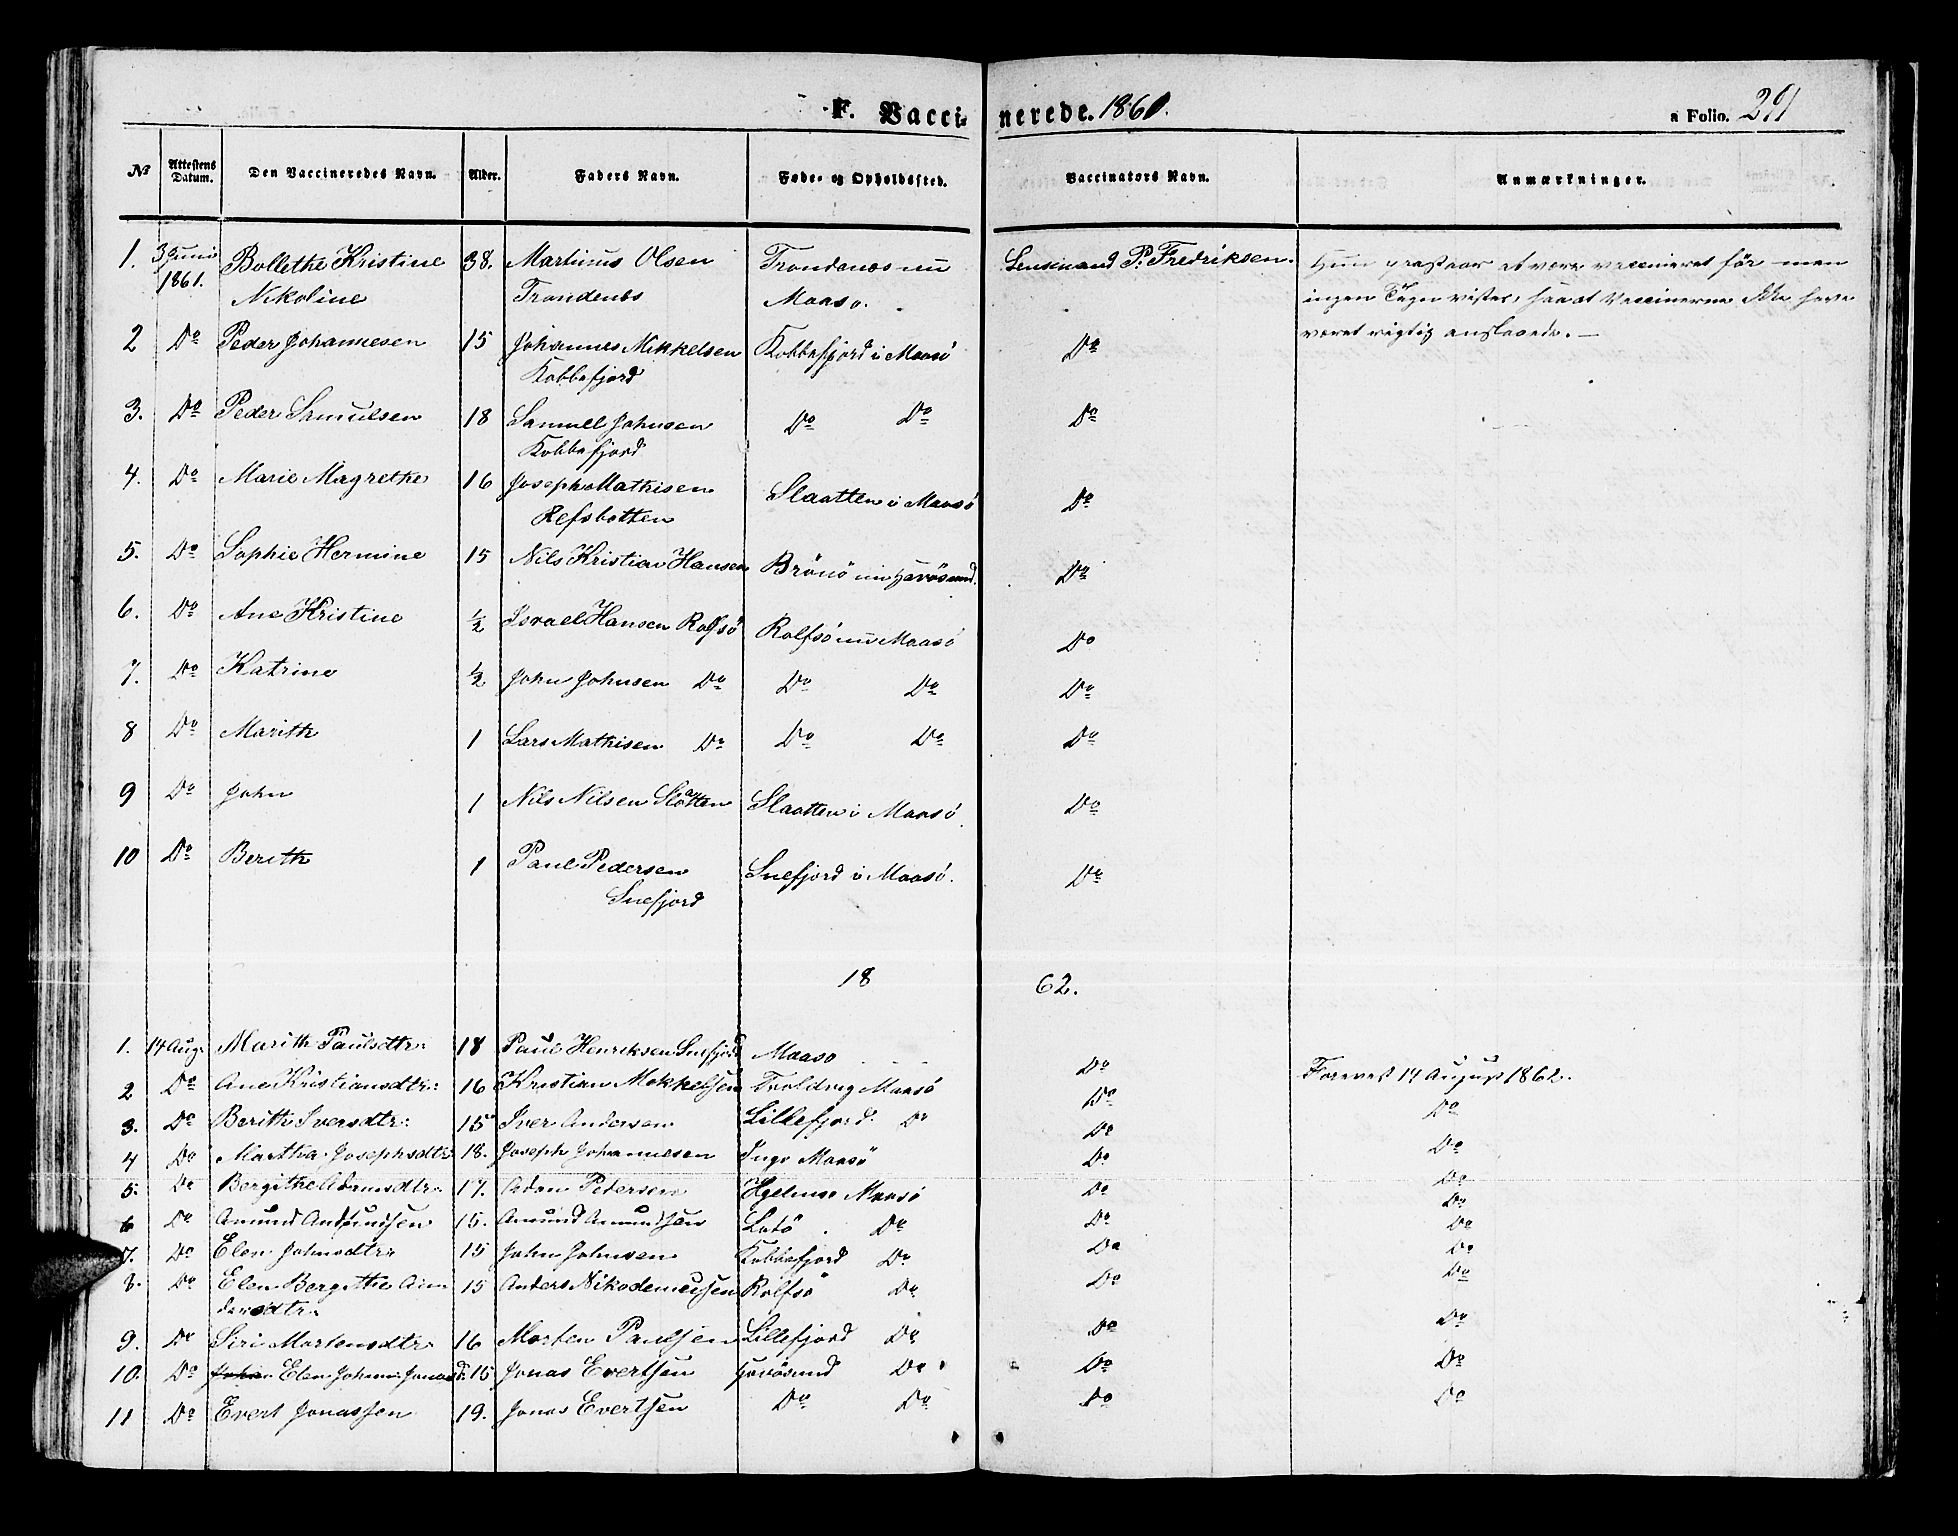 F. Vaccinerede. 1861. a Folio. 291
№ Attestens Datum. Den Vaccineredes Navn. Alder. Faders Navn. Føde- og Opholdssted. Vaccinators Navn. Anmærkninger.
1. 3 Juni 1861. Bollethe Kristine Nikoline 38. Martinus Olsen Trondenæs Trondenæs nu Maasø. Lensmand P. Fredriksen. Hun paastaar at være vaccineret før men
ingen Tegn vistes, saa at Vaccinerne ikke have
været rigtig anslaaede. —
2 Do Peder Johannesen 15 Johannes Mikkelsen Kobbefjord Kobbefjord i Maasö Do
3. Do Peder Samuelsen 18 Samuel Johnsen Kobbefjord Do Do Do
4. Do Marie Magrethe 16 Joseph Mathisen Refsbotten Slaatten i Maasö Do
5. Do Sophie Hermine 15 Nils Kristian Hansen Brönö nu Havösund. Do
6. Do Ane Kristine ½ Israel Hansen Rolfsö Rolfsö nu Maasö Do
7. Do Katrine ½ John Johnsen Do Do Do Do
8 Do Marith 1 Lars Mathisen Do Do Do Do
9 Do John 1 Nils Nilsen Slaatten Slaatten i Maasö. Do
10 Do Berith 1 Paul Pedersen Snefjord Snefjord i Maasö. Do
18 62.
1. 14 Aug. Marith Paulsdtr: 18 Paul Henriksen Snefjord Maaso Do Forevist 14 August 1862.
2 Do Ane Kristiansdtr: 16 Kristian Mekkelsen Maasö Do Do
3. Do Berith Iversdtr: 15 Iver Andersen Lillefjord. Do Do Do
4 Do Martha Josephsdtr 18. Joseph Johannesen Ingø Maasö Do Do
5. Do Bergithe Adamsdtr. 17. Adam Petersen Hjelmsø Maasö Do Do
6 Do Amund Amundsen 15. Amund Amundsen Latö. Do Do Do
7. Do Elen Johnsdtr 15 John Johnsen Kobbefjord Do Do Do
8. Do Elen Bergithe Andersdtr. 15 Anders Nikodemussen Rolfsö Do Do Do
9. Do Siri Mortensdtr 16 Morten Paulsen Lillefjord Do Do Do
10. Do Elen Johanne Jonasd. 15 Jonas Evertsen Havösund Do Do Do
11 Do Evert Jonassen 19. Jonas Evertsen Do Do Do Do